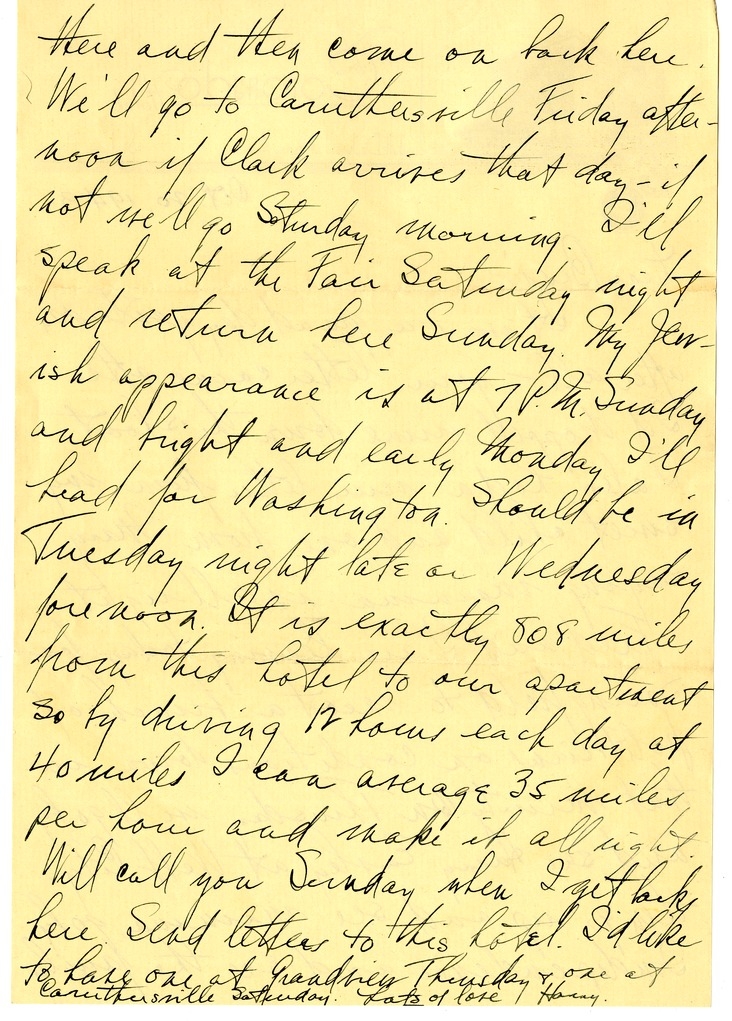 there and then come on back here.
We'll go to Caruthersville Friday after-
noon if Clark arrives that day - if
not we'll go Saturday morning. I'll
speak at the Fair Saturday night
and return here Sunday. My Jew-
ish appearance is at 7 P.M. Sunday
and bright and early Monday I'll
head for Washington. Should be in
Tuesday night late or Wednesday
forenoon. It is exactly 808 miles
from this hotel to our apartment
so by driving 12 hours each day at
40 miles I can average 35 miles
per hour and make it all right.
Will call you Sunday when I get back
here. Send letters to this hotel. I'd like
to have one at Grandview Thursday & one at
Caruthersville Saturday. Lots of love Harry.